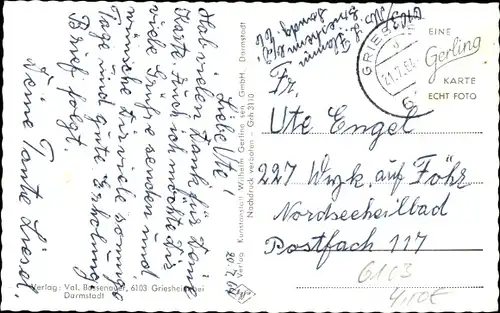 Liebe Ute!
Hab vielen Dank für Deine
Karte. Auch ich möchte Dir
viele Grüße senden und
wünsche Dir viele sonnige
Tage und gute Erholung
Brief folgt.
Deine Tante Liesel.
20.7.64
Verlag: Val. Bassenauer, 6103 Griesheim bei
Darmstadt
Verlag Kunstanstalt Wilhelm Gerling sen. GmbH, Darmstadt
Nachdruck verboten - Grh 3110
GRIESHEIM
21.7.64
EINE
Gerling
KARTE
ECHT FOTO
Fr.
Ute Engel
227 Wyk auf Föhr
Nordseeheilbad
Postfach 117
6103
4,10€